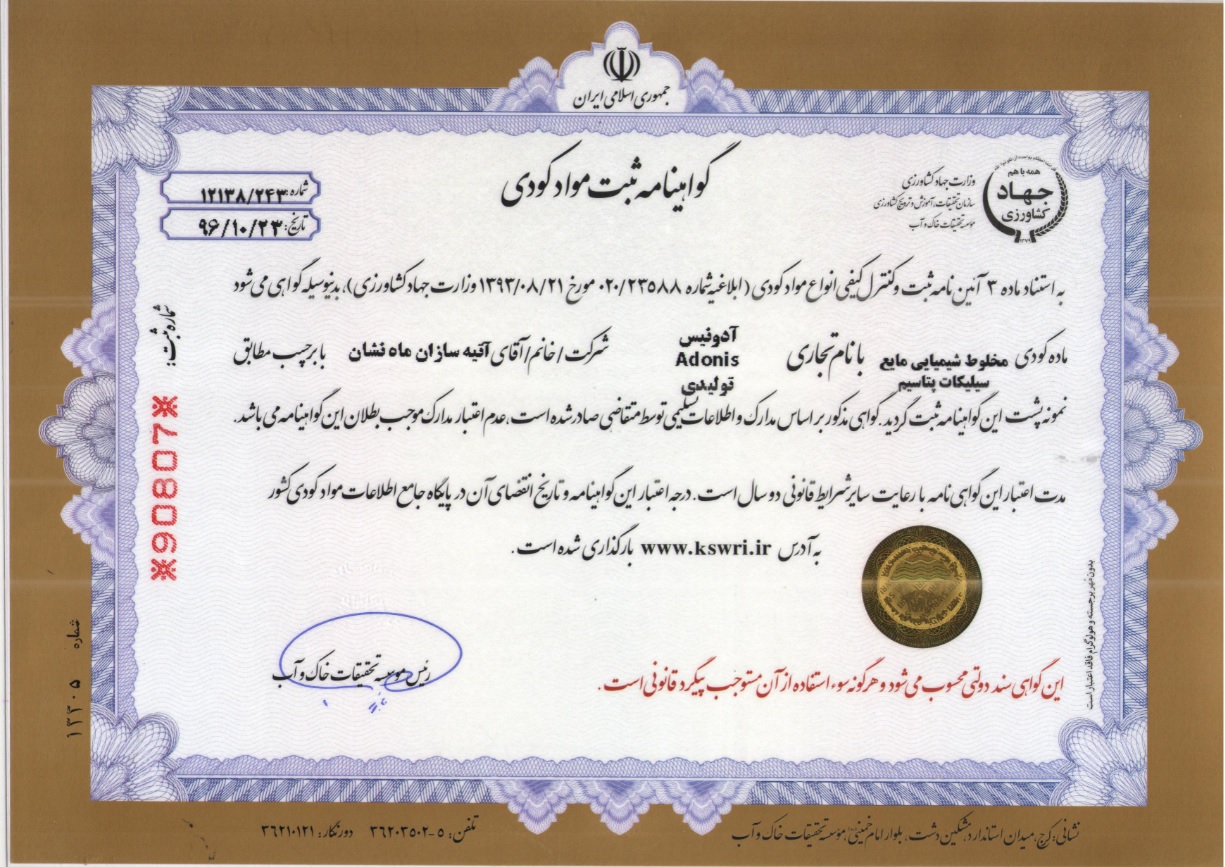 جمهوری اسلامی ایران
گواهینامه ثبت مواد کودی
همه با هم
جهاد
کشاورزی
وزارت جهاد کشاورزی
سازمان تحقیقات، آموزش و ترویج کشاورزی
موسسه تحقیقات خاک و آب
شماره: ۱۲۱۳۸/۲۴۳
تاریخ: ۹۶/۱۰/۲۳
به استناد ماده ۳ آئین نامه ثبت و کنترل کیفی انواع مواد کودی (ابلاغیه شماره ۰۲۰/۲۳۵۸۸ مورخ ۱۳۹۳/۰۸/۲۱ وزارت جهاد کشاورزی)، بدینوسیله گواهی می شود
ماده کودی مخلوط شیمیایی مایع سیلیکات پتاسیم با نام تجاری آدونیس Adonis تولیدی شرکت/خانم/آقای آتیه سازان ماه نشان با برچسب مطابق
نمونه پشت این گواهینامه ثبت گردید. گواهی مذکور بر اساس مدارک و اطلاعات تسلیمی توسط متقاضی صادر شده است، عدم اعتبار مدارک موجب بطلان این گواهینامه می باشد.
مدت اعتبار این گواهی نامه با رعایت سایر شرایط قانونی دو سال است. درجه اعتبار این گواهینامه و تاریخ انقضای آن در پایگاه جامع اطلاعات مواد کودی کشور
به آدرس www.kswri.ir بارگذاری شده است.
شماره ثبت:
※90807※
رئیس موسسه تحقیقات خاک و آب
این گواهی سند دولتی محسوب می شود و هرگونه سوء استفاده از آن مستوجب پیگرد قانونی است.
بدون مهر برجسته و هولوگرام فاقد اعتبار است
شماره ۱۳۳۰۵
نشانی: کرج، میدان استاندارد، مشکین دشت، بلوار امام خمینی، موسسه تحقیقات خاک و آب
تلفن: ۵-۳۶۲۰۳۵۰۲ دورنگار: ۳۶۲۱۰۱۲۱